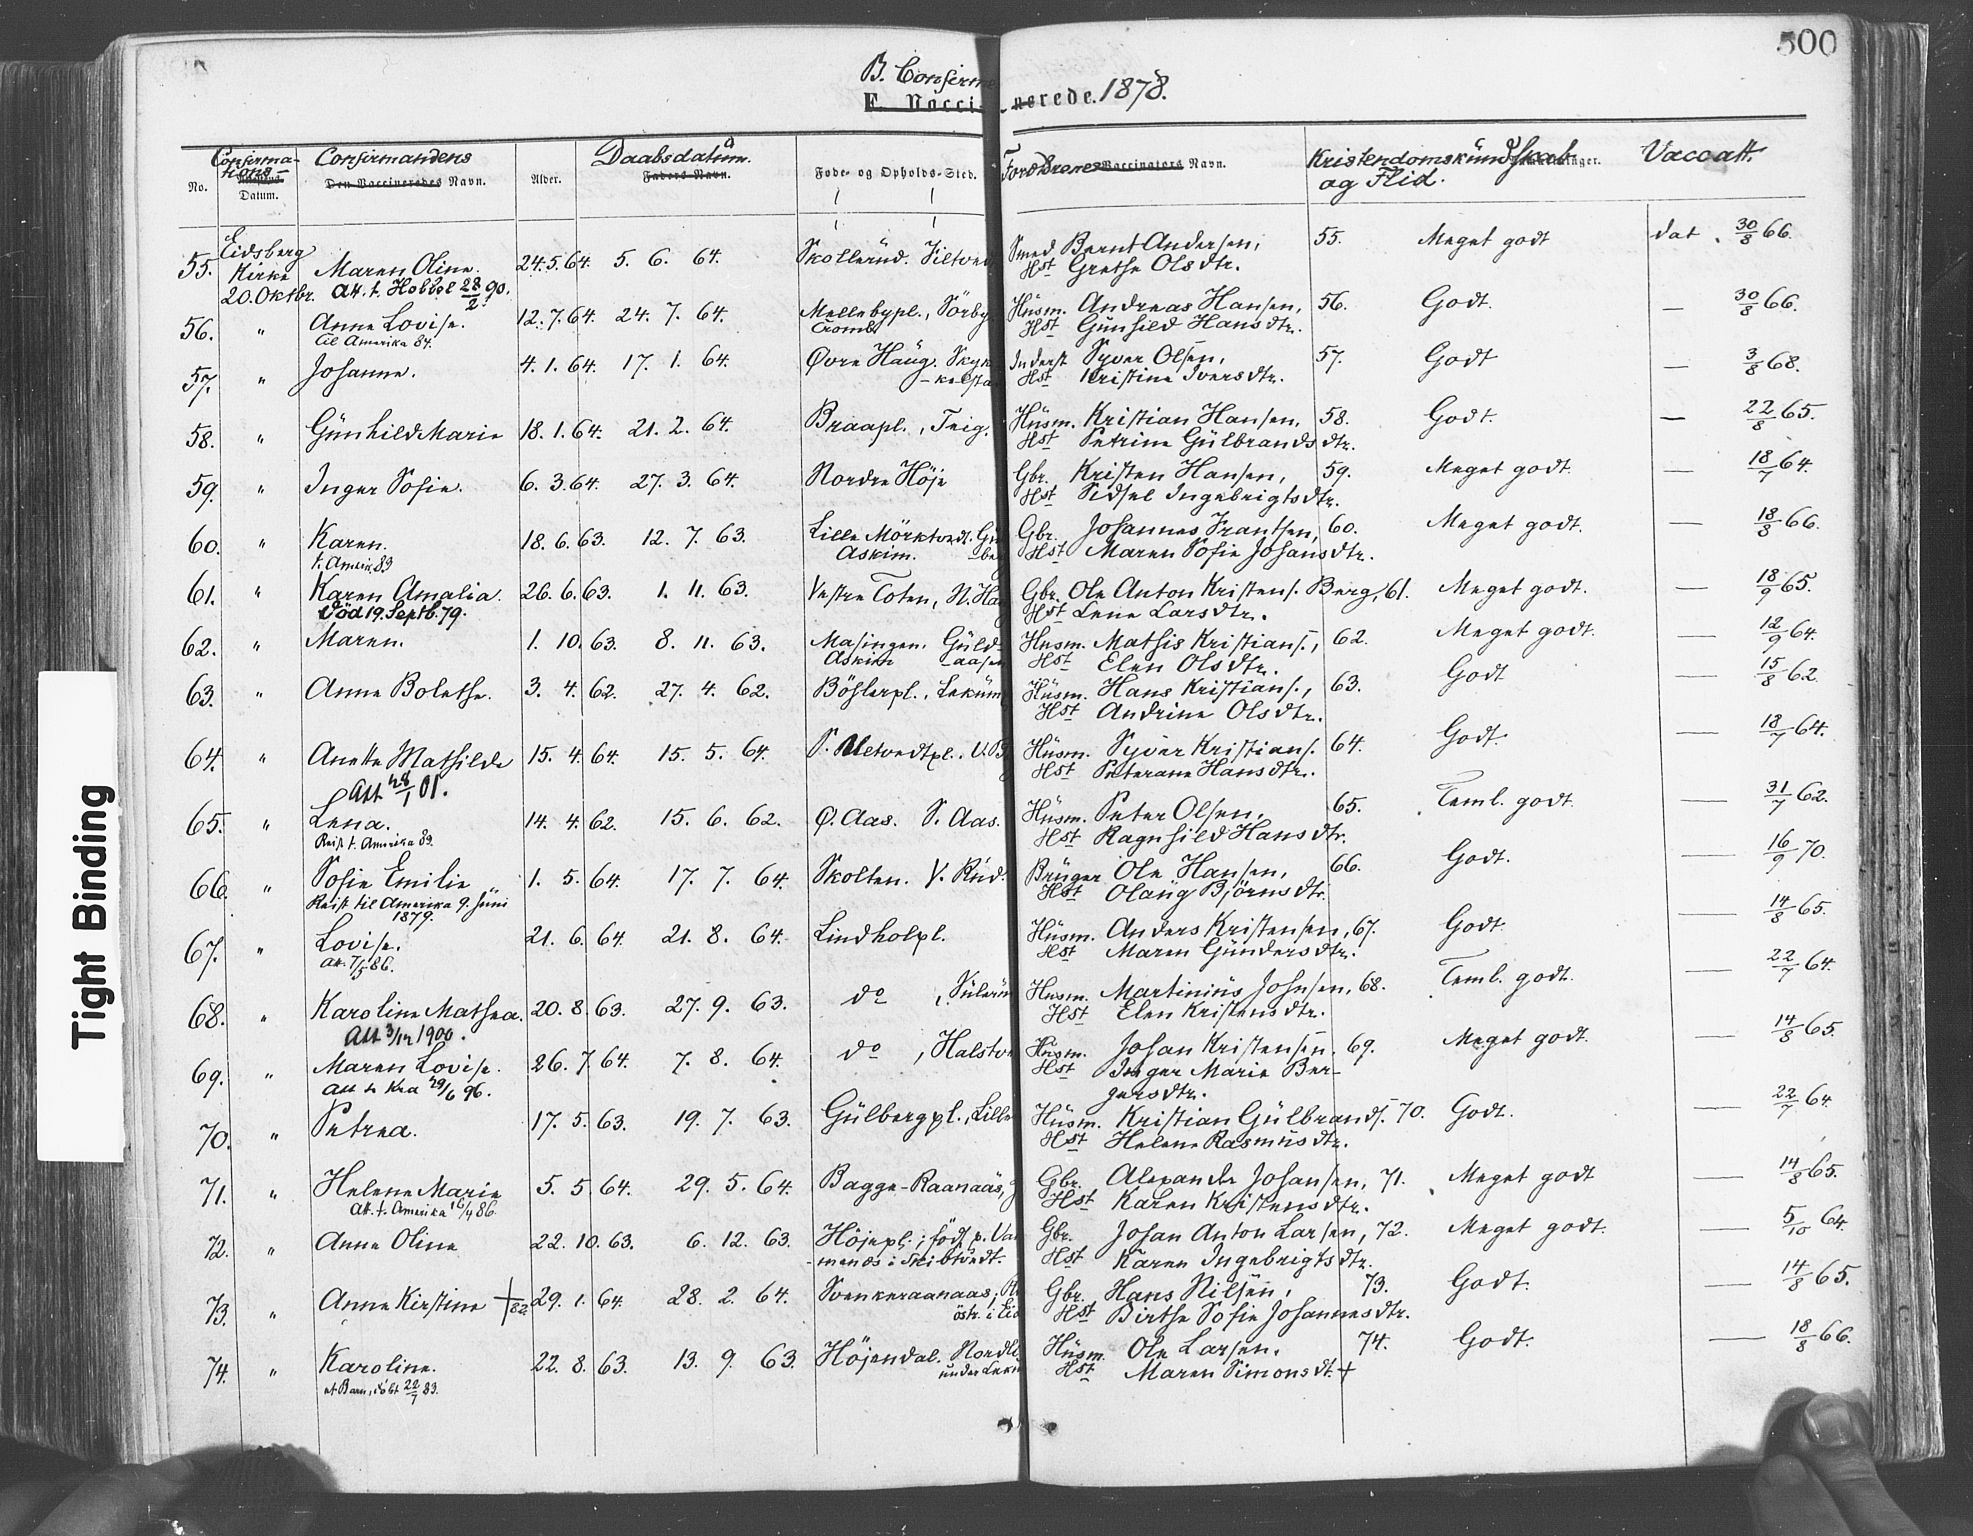 500
B. Confirme
E. Vacci- nerede. 1878.
No. Confirma-tions- Datum. Confirmandens Den Vaccineredes Navn. Alder. Daabsdatum. Faders Navn. Føde- og Opholds-Sted. Forældrenes Vaccinators Navn. Kristendomskundskab og Flid. Vaccatt.
55. Eidsberg Kirke 20. Oktbr. Maren Oline. 24.5.64. 5. 6. 64. Skollerud. Smed Bernt Andersen, 55. Meget godt dat. 30/8 66.
Att. t. Hobbøl 28/2 90. Hst Grethe Olsdtr.
56. " Anne Lovise. 12.7.64. 24. 7. 64. Mellebypl., Sörby Husm. Andreas Hansen, 56. Godt. — 30/8 66.
Til Amerika 84. Tromb Hst Gunhild Hansdtr.
57. " Johanne. 4.1.64. 17. 1. 64. Øvre Haug. Inderst Syver Olsen, 57. Godt — 3/8 68.
Hst Kristine Iversdtr.
58. " Gunhild Marie 18.1.64. 21. 2. 64. Braapl., Teig. Husm. Kristian Hansen, 58. Godt. — 22/8 65.
Hst Petrine Gulbrandsdtr.
59. " Inger Sofie. 6.3.64. 27. 3. 64. Nordre Höje Gbr. Kristen Hansen, 59. Meget godt. — 18/7 64.
Hst Sidsel Ingebrigtsdtr.
60. " Karen. 18.6.63. 12. 7. 63. Lille Mörktvedt. Gbr. Johannes Frantsen, 60. Meget godt. — 18/8 66.
t. Amerik. 83 Askim. Hst Maren Sofie Johansdtr.
61. " Karen Amalia. 26.6.63. 1. 11. 63. Vestre Toten, Gbr. Ole Anton Kristens. Berg, 61. Meget godt. — 18/9 65.
Död 19. Septb. 79. Hst Lene Larsdtr.
62. " Maren. 1.10.63. 8. 11. 63. Masingen. Guld- Husm. Mathis Kristians., 62. Meget godt. — 12/9 64.
Askim -aasen Hst Elen Olsdtr.
63. " Anne Bolethe. 3.4.62. 27. 4. 62. Böhlerpl., Lekum Husm. Hans Kristians., 63. Godt — 15/8 62.
Hst Andrine Olsdtr.
64. " Anette Mathilde 15.4.64. 15. 5. 64. Husm. Syver Kristians. 64. Godt. — 18/7 64.
Att 28/1 01. Hst Peterane Hansdtr.
65. " Lena. 14.4.62. 15. 6. 62. Ø. Aas. S. Aas. Husm. Peter Olsen, 65. Teml. godt. — 31/7 62.
Reist t. Amerika 83. Hst Ragnhild Hansdtr.
66. " Sofie Emilie 1.5.64. 17. 7. 64. Skolten. V. Rud. Bruger Ole Hansen, 66. Godt. — 16/9 70.
Reist til Amerika 9. Juni 1879. Hst Olaug Björnsdtr.
67. " Lovise. 21.6.64. 21. 8. 64. Lindholpl. Husm. Anders Kristensen, 67. Godt. — 14/8 65.
Att. 7/5 86. Hst Maren Gundersdtr.
68. " Karoline Mathea. 20.8.63. 27. 9. 63. do Husm. Martinius Johnsen, 68. Teml. godt. — 22/7 64.
Att 3/12 1900. Hst Elen Kristensdtr.
69. " Maren Lovise. 26.7.64. 7. 8. 64. do, Halstv Husm. Johan Kristensen. 69. Meget godt. — 14/8 65.
Att t. Kra 29/6 96. Hst Inger Marie Ber-
gersdtr.
70. " Petrea. 17.5.63. 19. 7. 63. Gulbergpl., Lille Husm. Kristian Gulbrands. 70. Godt. — 22/7 64.
Hst Helene Rasmusdtr.
71. " Helene Marie 5.5.64. 29. 5. 64. Bagge-Raanaas, Gbr. Alexander Johansen, 71. Meget godt — 14/8 65.
Att. t. Amerika 16/4 86. Hst Karen Kristensdtr.
72. " Anne Oline 22.10.63. 6. 12. 63. Höjepl.; födt p. Gbr. Johan Anton Larsen, 72. Meget godt. — 5/10 64.
Hst Karen Ingebrigtsdtr.
73. " Anne Kirstine † 82 29.1.64. 28. 2. 64. Svenkeraanaas; Gbr. Hans Nilsen, 73. Godt. — 14/8 65.
östr. i Eid Hst Birthe Sofie Johannesdtr.
74. " Karoline. 22.8.63. 13. 9. 63. Höjendal. Husm. Ole Larsen, 74. Godt. — 18/8 66.
et Barn, döbt 22/7 83. under Lekum Hst Maren Simonsdt. †
Tight Binding